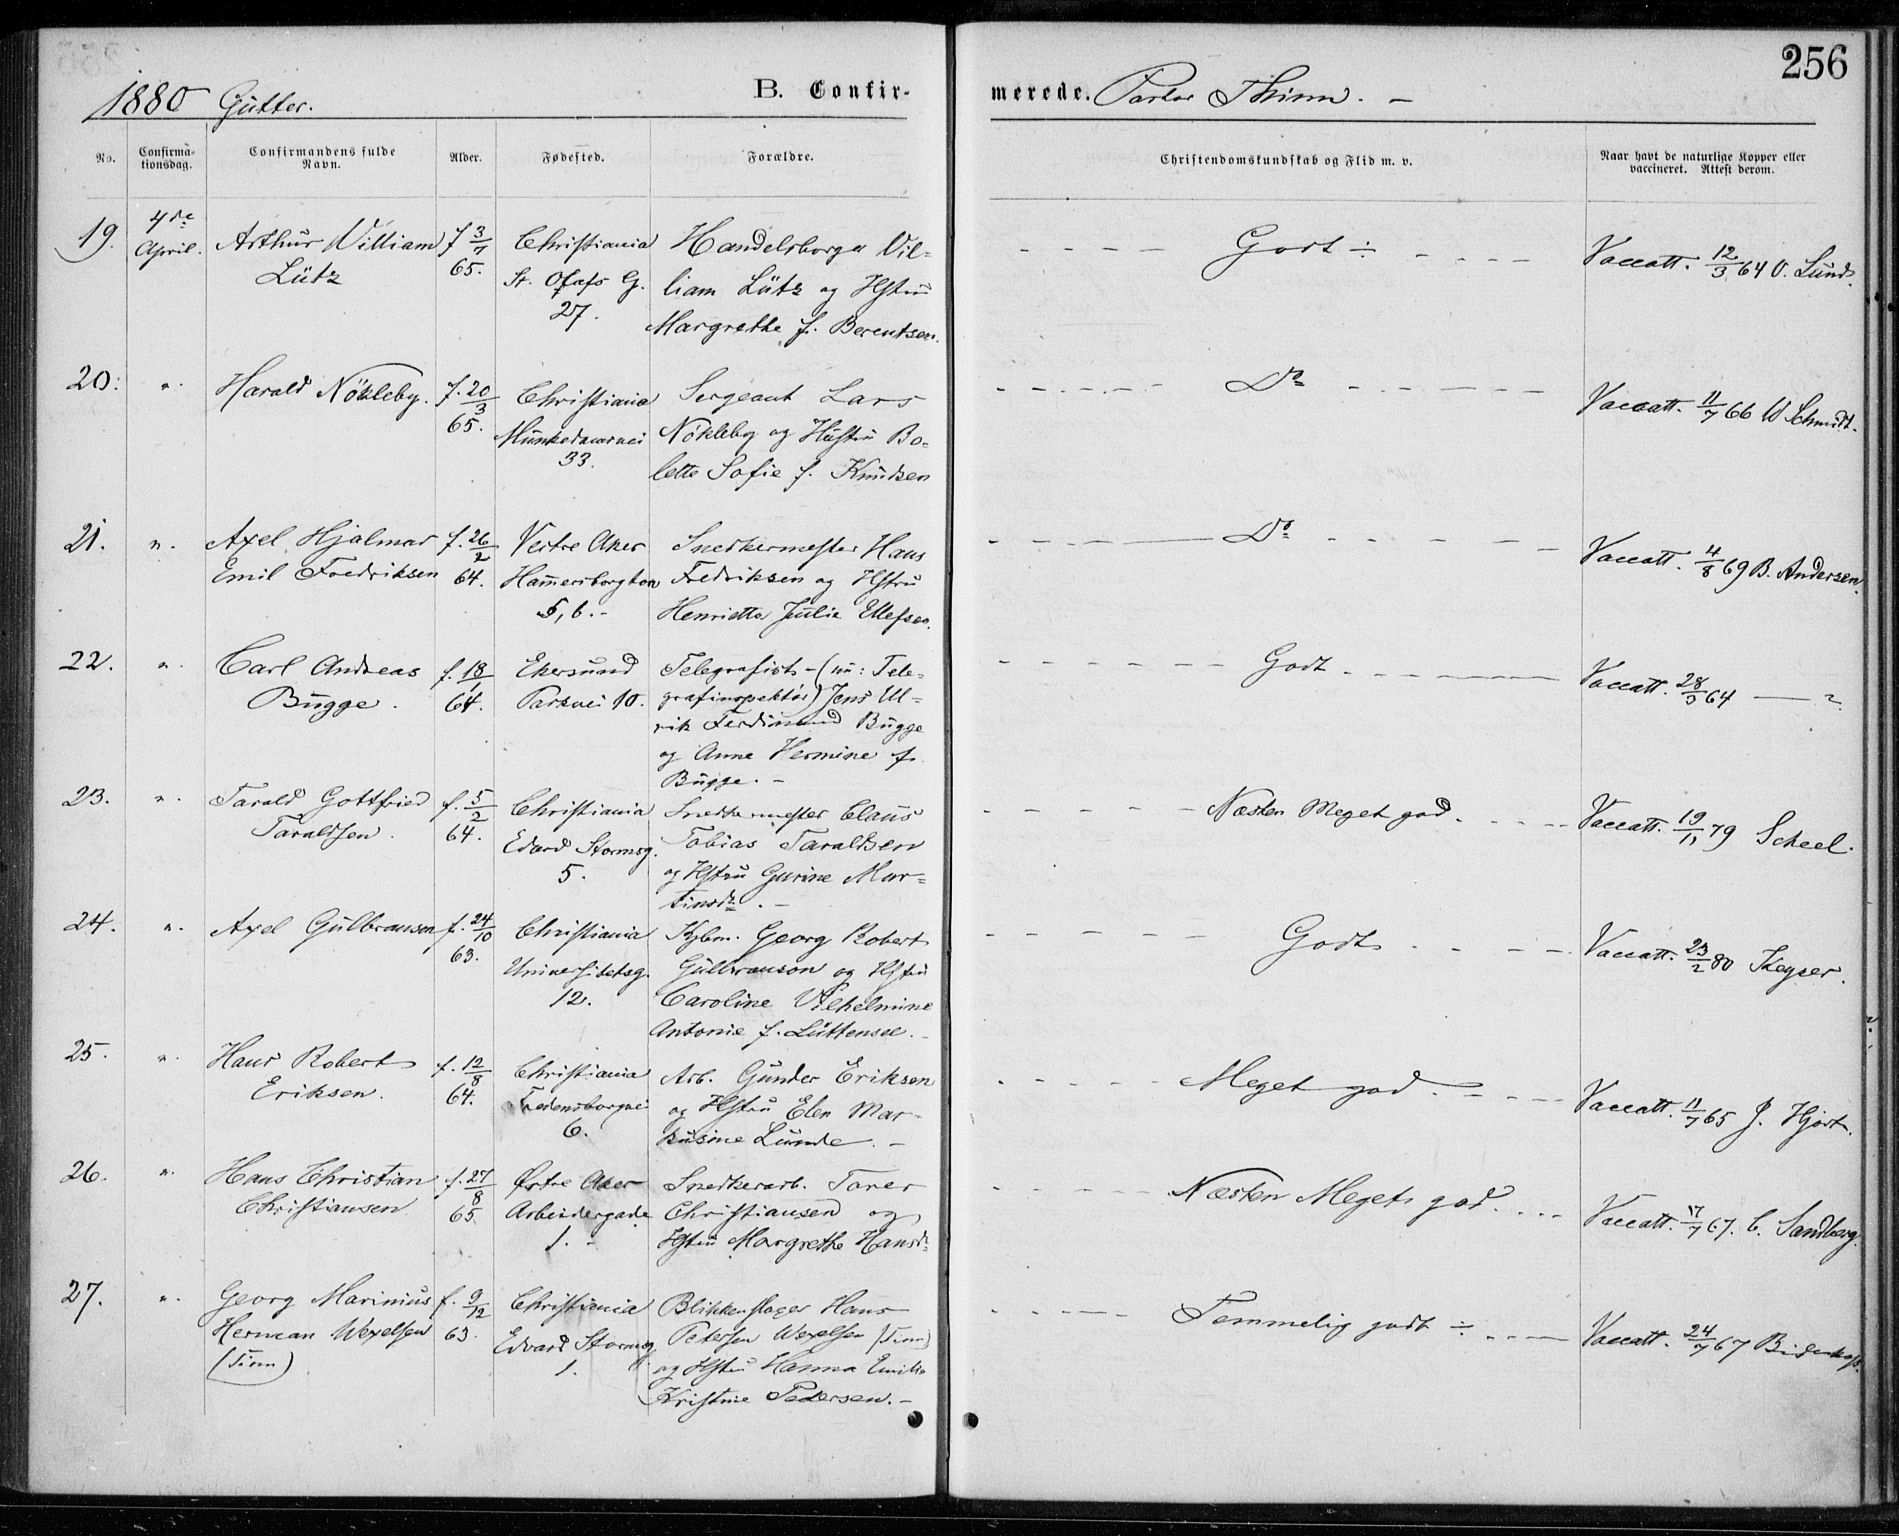 256
1880 Gutter. B. Confirmerede. Pastor Thinn. -
No. Confirmationsdag. Confirmandens fulde Navn. Alder. Fødested. Forældre. Christendomskundskab og Flid m. v. Naar havt de naturlige Kopper eller vaccineret. Attest derom.
19. 4de April. Arthur William f 3/7 Christiania Handelsborger Vil- Godt ÷ Vaccatt. 12/3 64 O. Lund.
Lütz 65. St. Olafs G. liam Lütz og Hstru
27. Margrethe f. Berentsen.
20. ". Harald Nökleby. f. 20/3 Christiania Sergeant Lars Do Vaccatt. 11/7 66 W Schmidt.
65. Munkedamvei Nökleby og Hustru Bo-
33. lette Sofie f. Knudsen
21. ". Axel Hjalmar f. 26/2 Vestre Aker Snedkermester Hans Do Vaccatt. 4/8 69 B. Andersen.
Emil Fredriksen 64. Hamersborgton Fredriksen og Hstru
5, 6. - Henriette Julie Ellefsen.
22. ". Carl Andreas f. 18/1 Ekersund Telegrafist - (nu: Tele- Godt. Vaccatt. 28/3 64
Bugge. 64. Parkvei 10. grafinspektör) Jens Ul-
rik Ferdinand Bugge
og Anne Hermine f.
Bugge. -
23. ". Tarald Gottfried f. 5/2 Christiania Snedkermester Claus Næsten Meget god. Vaccatt. 19/11 79 Scheel.
Taraldsen. 64. Edvard Stormsg. Tobias Taraldsen
5. og Hstru Gurine Mar-
tinsdr. -
24. ". Axel Gulbranson f. 24/10 Christiania Kjbm. Georg Robert Godt Vaccatt. 23/2 80 Keyser.
63. Universitetsg. Gulbranson og Hstru
12. Caroline Vilhelmine
Antonie f. Lüttensee. -
25. ". Hans Robert f. 12/8 Christiania Arb. Gunder Eriksen Meget god. Vaccatt. 11/7 65 J. Hjort.
Eriksen. 64. Fredensborgvei og Hstru Elen Mar-
6. kusine Lunde. -
26. ". Hans Christian f. 27/8 Østre Aker Snedkerarb. Torer Næsten Meget god. Vaccatt. 17/7 67. C. Sandberg.
Christiansen 65. Arbeidergade Christiansen og
1. - Hstru Margrethe Hansdr
27. ". Georg Marinius f. 9/12 Christiania Blikkenslager Hans Temmelig godt ÷ Vaccatt. 24/7 67
Herman Wexelsen 63. Edvard Stormsg. Petersen Wexelsen (Finn)
(Finn) 1. og Hstru Hanna Emilie
Kristine Pedersen. -